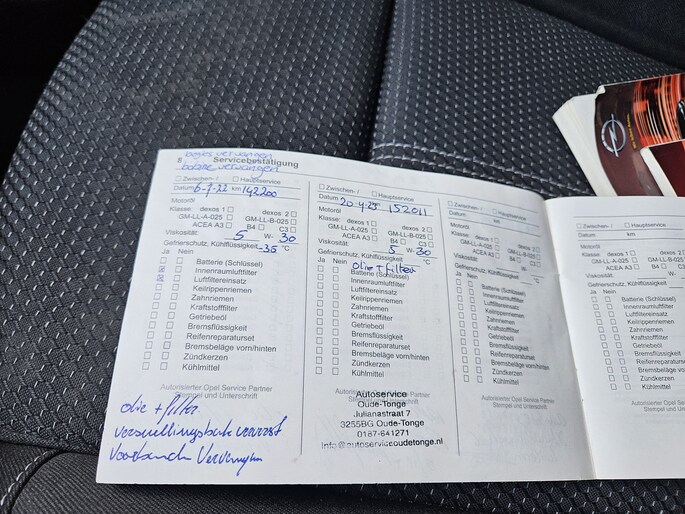 bougies vervangen
bobine vervangen
8 Servicebestätigung
Zwischen- / Hauptservice
Datum 6-7-22 km 142200
Motoröl
Klasse: dexos 1 dexos 2
GM-LL-A-025 GM-LL-B-025
ACEA A3 B4 C3
Viskosität: 5 W- 30
Gefrierschutz, Kühlflüssigkeit -35 °C
Ja Nein
Batterie (Schlüssel)
Innenraumluftfilter
Luftfiltereinsatz
Keilrippenriemen
Zahnriemen
Kraftstofffilter
Getriebeöl
Bremsflüssigkeit
Reifenreparaturset
Bremsbeläge vorn/hinten
Zündkerzen
Kühlmittel
Autorisierter Opel Service Partner
Stempel und Unterschrift
olie + filter
versnellingsbak ververst
Voorbanden Vervangen
Zwischen- / Hauptservice
Datum km 152011
Motoröl
Klasse: dexos 1 dexos 2
GM-LL-A-025 GM-LL-B-025
ACEA A3 B4 C3
Viskosität: 5 W- 30
Gefrierschutz, Kühlflüssigkeit °C
Ja Nein olie + filter
Batterie (Schlüssel)
Innenraumluftfilter
Luftfiltereinsatz
Keilrippenriemen
Zahnriemen
Kraftstofffilter
Getriebeöl
Bremsflüssigkeit
Reifenreparaturset
Bremsbeläge vorn/hinten
Zündkerzen
Kühlmittel
Autoservice
Oude-Tonge
Julianastraat 7
3255BG Oude-Tonge
0187-641271
info@autoserviceoudetonge.nl
Zwischen- / Hauptservice
Datum km
Motoröl
Klasse: dexos 1 dexos 2
GM-LL-A-025 GM-LL-B-025
ACEA A3 B4 C3
Viskosität: W-
Gefrierschutz, Kühlflüssigkeit °C
Ja Nein
Batterie (Schlüssel)
Innenraumluftfilter
Luftfiltereinsatz
Keilrippenriemen
Zahnriemen
Kraftstofffilter
Getriebeöl
Bremsflüssigkeit
Reifenreparaturset
Bremsbeläge vorn/hinten
Zündkerzen
Kühlmittel
Autorisierter Opel Service Partner
Stempel und Unterschrift
Zwischen- / Hauptservice
Datum km
Motoröl
Klasse: dexos 1 dexos 2
GM-LL-A-025 GM-LL-B-025
ACEA A3 B4 C3
Viskosität: W-
Gefrierschutz, Kühlflüssigkeit
Ja Nein
Batterie (Schlüssel)
Innenraumluftfilter
Luftfiltereinsatz
Keilrippenriemen
Zahnriemen
Kraftstofffilter
Getriebeöl
Bremsflüssigkeit
Reifenreparaturset
Bremsbeläge vorn/hinten
Zündkerzen
Kühlmittel
Autorisierter Opel Service Partner
Stempel und Unterschrift